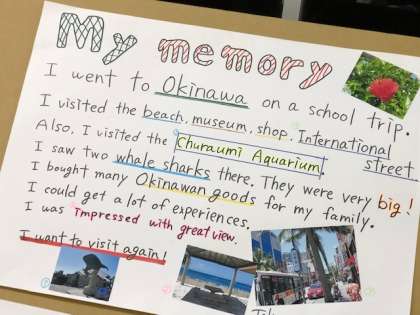 My memory
I went to Okinawa on a school trip.
I visited the beach, museum, shop, International street.
Also, I visited the Churaumi Aquarium.
I saw two whale sharks there. They were very big!
I bought many Okinawan goods for my family.
I could get a lot of experiences.
I was impressed with great view.
I want to visit again!